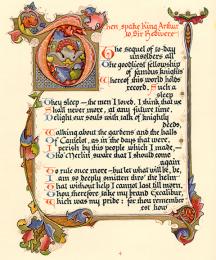 Then spake King Arthur
to Sir Bedivere
The sequel of to-day
unsolders all
The goodliest fellowship
of famous knights
Whereof this world holds
record. Such a
sleep
They sleep — the men I loved. I think that we
Shall never more, at any future time,
Delight our souls with talk of knightly
deeds,
Walking about the gardens and the halls
Of Camelot, as in the days that were.
I perish by this people which I made, —
Tho' Merlin sware that I should come
again
To rule once more — but let what will be, be,
I am so deeply smitten thro' the helm
That without help I cannot last till morn.
Thou therefore take my brand Excalibur,
Which was my pride: for thou rememberest how